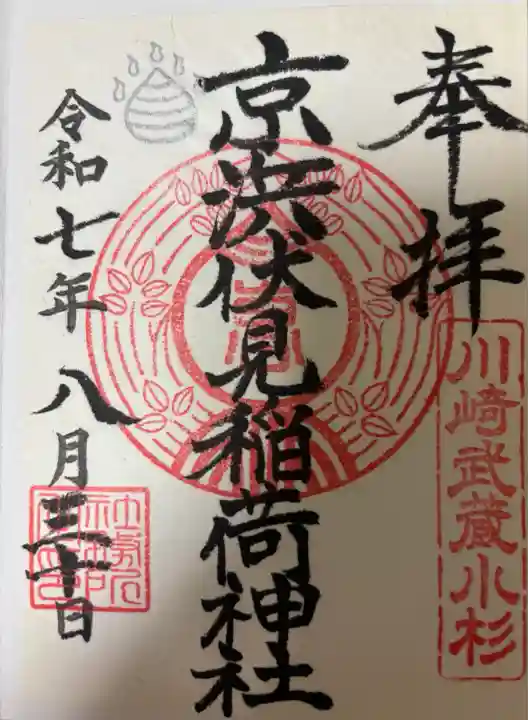 奉拝
川崎武蔵小杉
京浜伏見稲荷神社
令和七年八月三十日
社務所